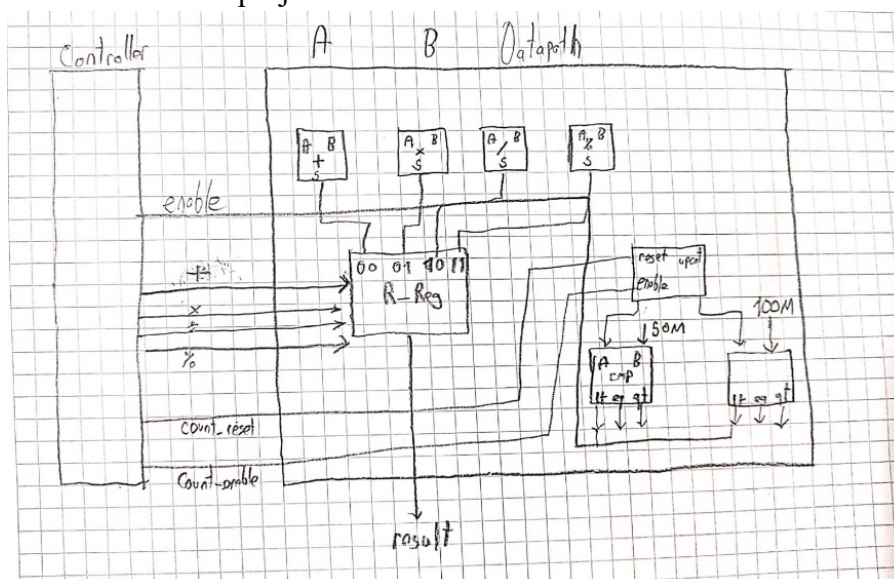 Controller A B Datapath
A B
+
S
A B
×
S
A B
/
S
A B
%
S
enable
00 01 10 11
R_Reg
+
×
÷
%
reset upcnt
enable
50M
100M
A B
CMP
lt eq gt
lt eq gt
count_reset
Count_enable
result